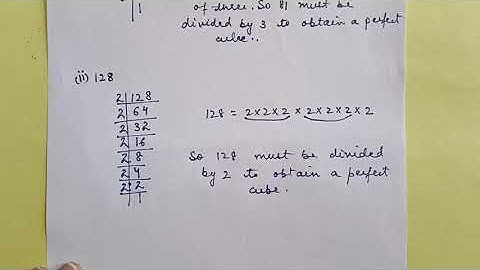 1
of three. So 81 must be
divided by 3 to obtain a perfect
cube..
(ii) 128
2 | 128
2 | 64
2 | 32
2 | 16
2 | 8
2 | 4
2 | 2
1
128 = 2×2×2 × 2×2×2 × 2
So 128 must be divided
by 2 to obtain a perfect
cube.